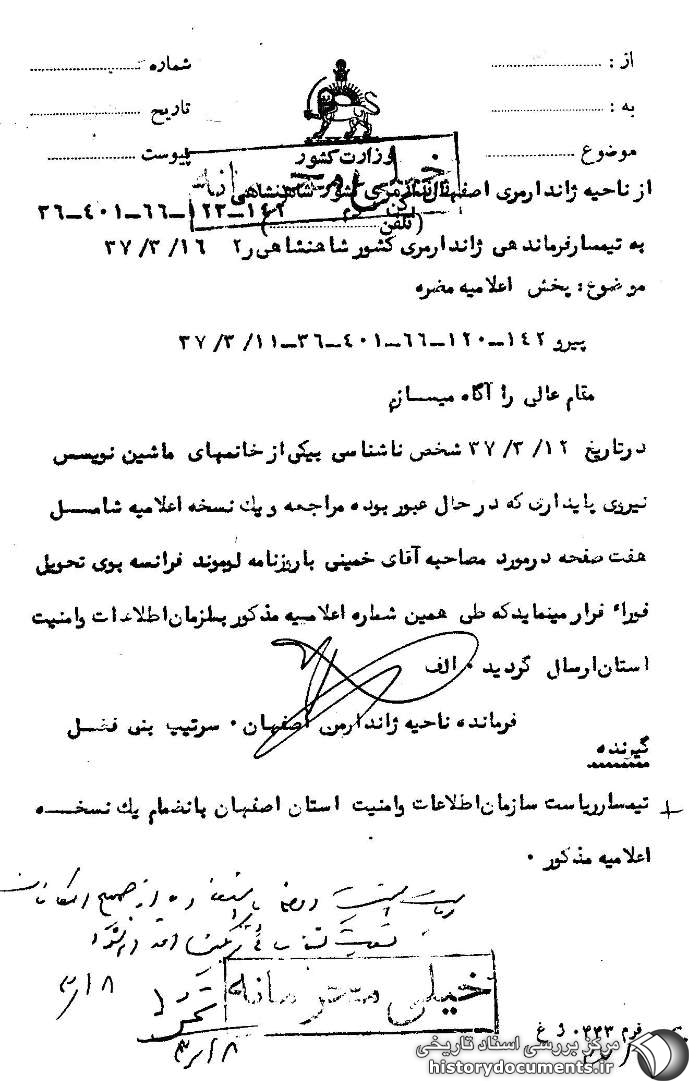 از : شماره
به : تاریخ
وزارت کشور
موضوع پیوست
خیلی محرمانه
از ناحیه ژاندارمری اصفهان ژاندارمری کشور شاهنشاهی
۳۶-۴۰۱-۶۶-۱۲۳-۱۴۲
( تلفن )
به تیمسار فرماندهی ژاندارمری کشور شاهنشاهی ر۲ ۳۷/۳/۱۶
موضوع : پخش اعلامیه مضره
پیرو ۱۴۲-۱۲۰-۶۶-۴۰۱-۳۶-۳۷/۳/۱۱
مقام عالی را آگاه میسازم
درتاریخ ۳۷/۳/۱۲ شخص ناشناسی بیکی از خانمهای ماشین نویس
نیروی پایداری که در حال عبور بوده مراجعه و یك نسخه اعلامیه شامل
هفت صفحه درمورد مصاحبه آقای خمینی با روزنامه لوموند فرانسه بوی تحویل
فوراً فرار مینماید که طی همین شماره اعلامیه مذکور بسازمان اطلاعات وامنیت
استان ارسال گردید . الف
فرمانده ناحیه ژاندارمری اصفهان . سرتیپ بنی فضل
گیرنده
تیمسار ریاست سازمان اطلاعات وامنیت استان اصفهان بانضمام یك نسخه
اعلامیه مذکور .
۳/۱۸
خیلی محرمانه
۳/۱۸
فرم ۰۴۴۳ ژ غ
مرکز بررسی اسناد تاریخی
historydocuments.ir